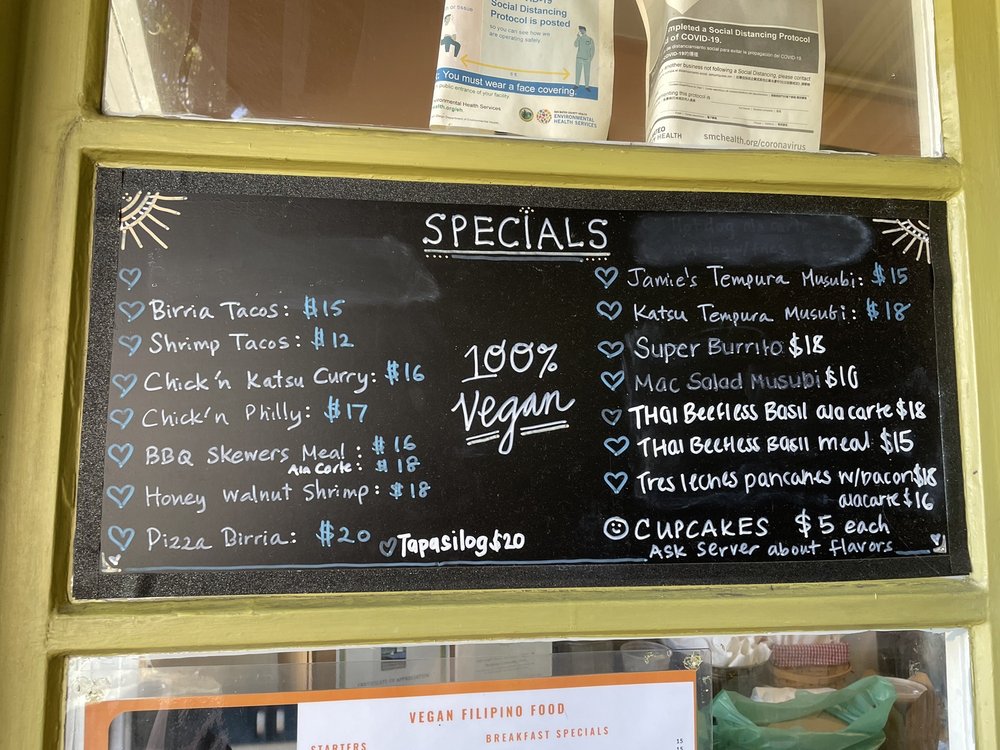 Social Distancing
Protocol is posted
so you can see how we
are operating safely.
You must wear a face covering.
public entrance of your facility.
ENVIRONMENTAL
HEALTH SERVICES
mpleted a Social Distancing Protocol
of COVID-19.
another business not following a Social Distancing, please contact
HEALTH
smchealth.org/coronavirus
SPECIALS
Birria Tacos: $15
Shrimp Tacos: $12
Chick'n Katsu Curry: $16
Chick'n Philly: $17
BBQ Skewers Meal: $16
Ala Carte: $18
Honey Walnut Shrimp: $18
Pizza Birria: $20
Tapasilog $20
100%
Vegan
Jamie's Tempura Musubi: $15
Katsu Tempura Musubi: $18
Super Burrito $18
Mac Salad Musubi $10
THAI Beefless Basil ala carte $18
THAI Beefless Basil meal $15
Tres leches pancakes w/bacon $18
alacarte $16
CUPCAKES $5 each
Ask server about flavors
VEGAN FILIPINO FOOD
STARTERS
BREAKFAST SPECIALS
15